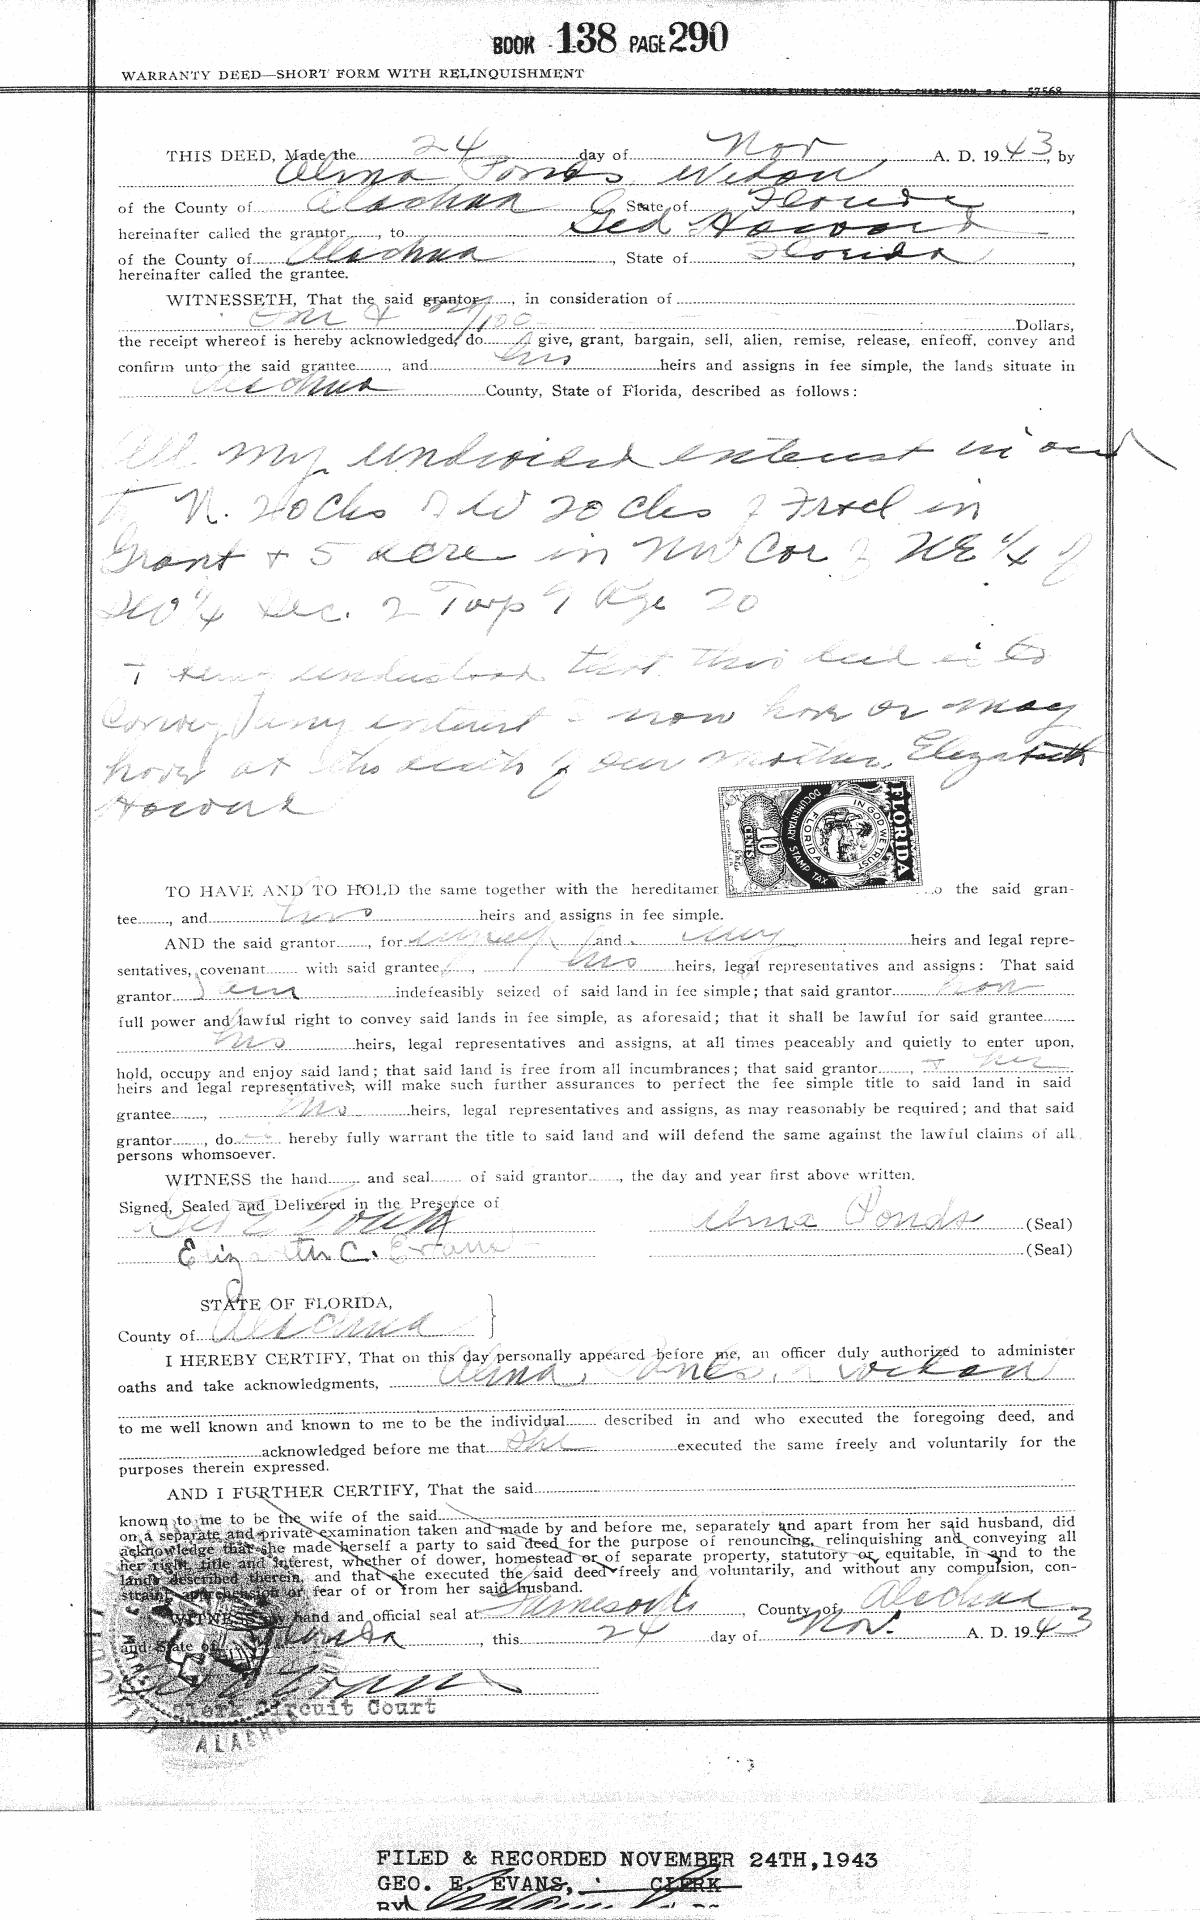 BOOK 138 PAGE 290
WARRANTY DEED—SHORT FORM WITH RELINQUISHMENT
WALKER, EVANS & COGSWELL CO., CHARLESTON, S. C. 57568
THIS DEED, Made the 24 day of Nov A. D. 1943, by
Alma Ponds, Widow
of the County of Alachua State of Florida,
hereinafter called the grantor, to Ged Howard
of the County of Alachua, State of Florida,
hereinafter called the grantee.
WITNESSETH, That the said grantor, in consideration of
One & no/100 Dollars,
the receipt whereof is hereby acknowledged, do give, grant, bargain, sell, alien, remise, release, enfeoff, convey and
confirm unto the said grantee, and his heirs and assigns in fee simple, the lands situate in
Alachua County, State of Florida, described as follows:
All my undivided interest in and
to N. 20 Chs of W 20 chs of Fracl in
Grant + 5 acre in NW Cor of NE 1/4 of
SW 1/4 Sec. 2 Twp 9 Rge 20
I being understood that this deed is to
Convey any interest I now have or may
have at the death of our mother, Elizabeth
Howard
FLORIDA
IN GOD WE TRUST
FLORIDA
DOCUMENTARY STAMP TAX
10 CENTS
TO HAVE AND TO HOLD the same together with the hereditamen o the said gran-
tee, and his heirs and assigns in fee simple.
AND the said grantor, for myself and my heirs and legal repre-
sentatives, covenant with said grantee, his heirs, legal representatives and assigns: That said
grantor I am indefeasibly seized of said land in fee simple; that said grantor has
full power and lawful right to convey said lands in fee simple, as aforesaid; that it shall be lawful for said grantee
his heirs, legal representatives and assigns, at all times peaceably and quietly to enter upon,
hold, occupy and enjoy said land; that said land is free from all incumbrances; that said grantor, + her
heirs and legal representatives, will make such further assurances to perfect the fee simple title to said land in said
grantee, his heirs, legal representatives and assigns, as may reasonably be required; and that said
grantor, do hereby fully warrant the title to said land and will defend the same against the lawful claims of all
persons whomsoever.
WITNESS the hand and seal of said grantor, the day and year first above written.
Signed, Sealed and Delivered in the Presence of
Geo E Evans Alma Ponds (Seal)
Elizabeth C. Evans (Seal)
STATE OF FLORIDA,
County of Alachua
I HEREBY CERTIFY, That on this day personally appeared before me, an officer duly authorized to administer
oaths and take acknowledgments, Alma Ponds, a widow
to me well known and known to me to be the individual described in and who executed the foregoing deed, and
acknowledged before me that she executed the same freely and voluntarily for the
purposes therein expressed.
AND I FURTHER CERTIFY, That the said
known to me to be the wife of the said
on a separate and private examination taken and made by and before me, separately and apart from her said husband, did
acknowledge that she made herself a party to said deed for the purpose of renouncing, relinquishing and conveying all
her right, title and interest, whether of dower, homestead or of separate property, statutory or equitable, in and to the
lands described therein, and that she executed the said deed freely and voluntarily, and without any compulsion, con-
straint, apprehension or fear of or from her said husband.
WITNESS my hand and official seal at Gainesville, County of Alachua
and State of Florida, this 24 day of Nov. A. D. 1943
Geo E Evans
Clerk Circuit Court
FILED & RECORDED NOVEMBER 24TH, 1943
GEO. E. EVANS, CLERK
BY